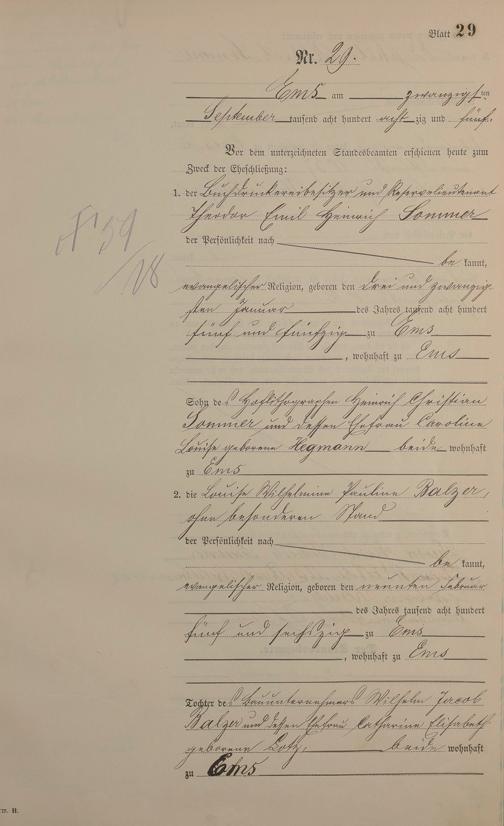 Blatt 29
Nr. 29.
Ems am zwanzigsten
September tausend acht hundert achtzig und fünf.
Vor dem unterzeichneten Standesbeamten erschienen heute zum
Zweck der Eheschließung:
1. der Buchdruckereibesitzer und Reservelieutenant
Theodor Emil Heinrich Sommer
der Persönlichkeit nach
be kannt,
evangelischer Religion, geboren den drei und zwanzig
sten Januar des Jahres tausend acht hundert
fünf und fünfzig zu Ems
, wohnhaft zu Ems
Sohn des Hoflithographen Heinrich Christian
Sommer und dessen Ehefrau Caroline
Louise geborene Hegmann beide wohnhaft
zu Ems
2. die Louise Wilhelmine Pauline Balzer,
ohne besonderen Stand
der Persönlichkeit nach
be kannt,
evangelischer Religion, geboren den neunten Februar
des Jahres tausend acht hundert
fünf und sechszig zu Ems
, wohnhaft zu Ems
Tochter des Bauunternehmers Wilhelm Jacob
Balzer und dessen Ehefrau Catharine Elisabeth
geborene Lotz, beide wohnhaft
zu Ems